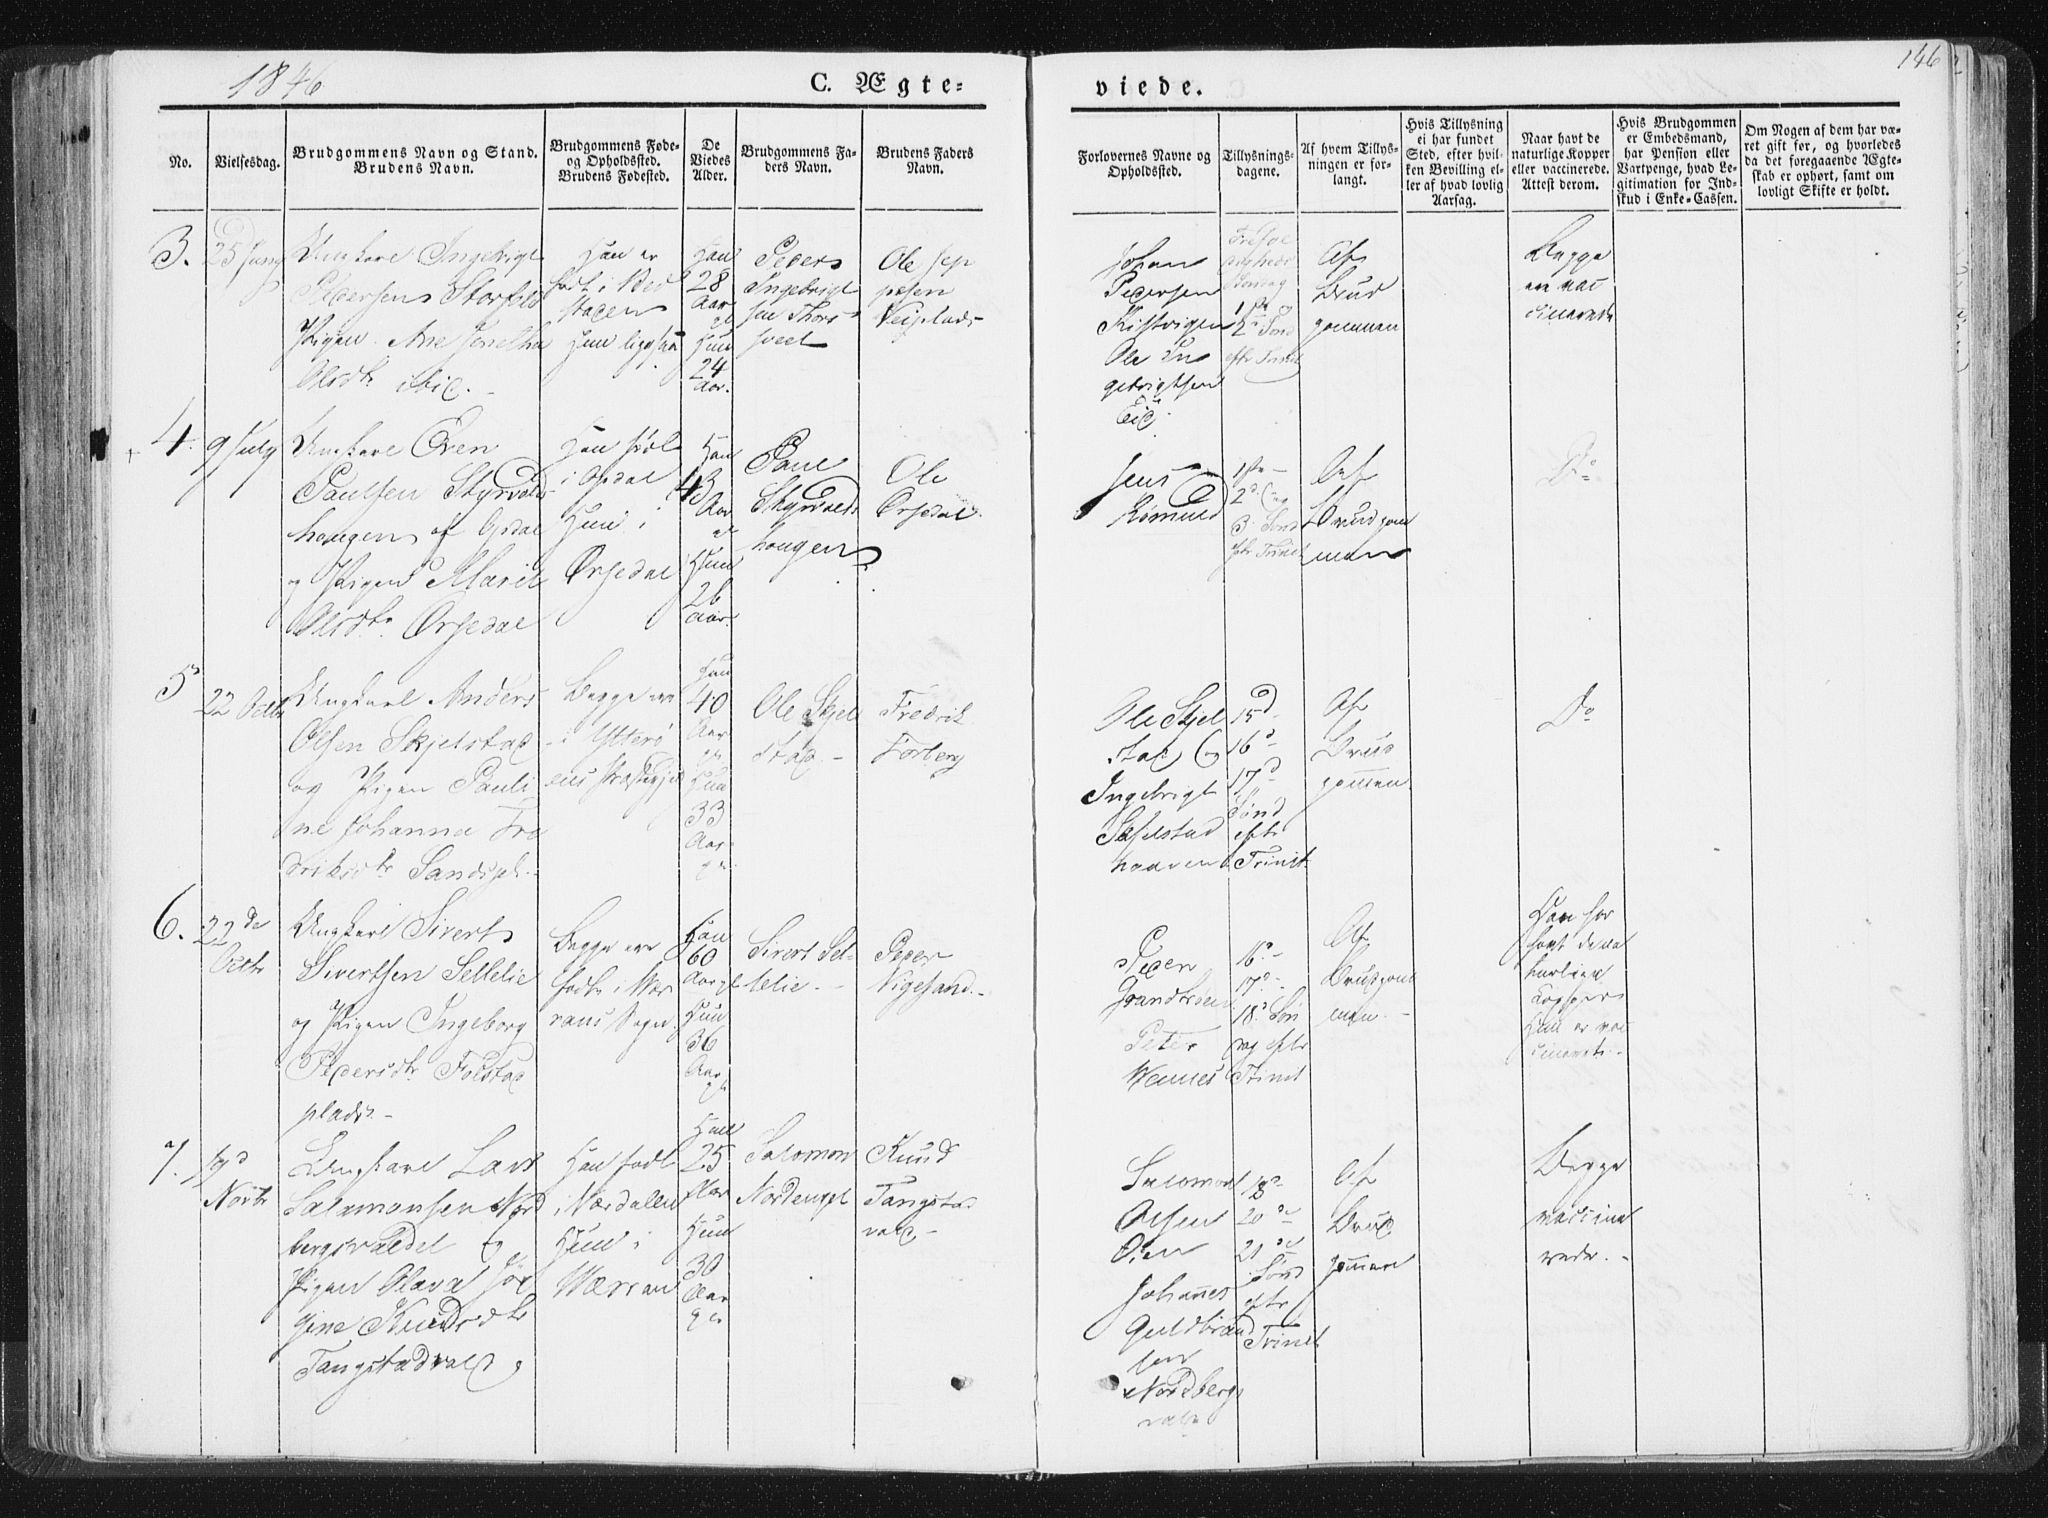 1846
C. Ægte-
viede.
146
No.
Vielsesdag.
Brudgommens Navn og Stand.
Brudens Navn.
Brudgommens Føde-
og Opholdssted.
Brudens Fødested.
De
Viedes
Alder.
Brudgommens Fa-
ders Navn.
Brudens Faders
Navn.
Forlovernes Navne og
Opholdssted.
Tillysnings-
dagene.
Af hvem Tillys-
ningen er for-
langt.
Hvis Tillysning
ei har fundet
Sted, efter hvil-
ken Bevilling el-
ler af hvad lovlig
Aarsag.
Naar havt de
naturlige Kopper
eller vaccinerede.
Attest derom.
Hvis Brudgommen
er Embedsmand,
har Pension eller
Vartpenge, hvad Le-
gitimation for Ind-
skud i Enke-Cassen.
Om Nogen af dem har væ-
ret gift før, og hvorledes
da det foregaaende Ægte-
skab er ophørt, samt om
lovligt Skifte er holdt.
3.
25 Juny
Ungkarl Ingebrigt
Pedersen
Pigen
Olsdtr
Han er
født i
Hun ligesaa
Han
28
Aar
Hun
24
Aar.
Peder
Ingebrigt
sen
Ole Jep
pesen
Johan
Pedersen
Kistvigen
Ole In
gebrigtsen
Eid
1ste og
2d Sønd
eftr Trinit
Af
Brud
gomman
Begge
ere vac
cinerede
4.
9 July
Ungkarl Even
Paulsen Styrvolds
haugen af Opdal
og Pigen Marit
Olsdtr. Ørsedal
Han født
i Opdal
Hun i
Ørsedal
Han
43
Aar
Hun
26
Aar.
Paul
Styrvolds
haugen
Ole
Ørsedal
Jens
Rømuld
1ste
2d og
3 Sønd
eftr Trinit
Af
Brudgom
man
Do
5
22 Octbr
Ungkarl Anders
Olsen Skjelstad
og Pigen Pauli
ne Johanna Fre
driksdtr Sandsgt.
Begge ere
i Ytterø
ens Præstegjeld
Han
40
Aar
gl.
Hun
33
Aar
gl.
Ole Skjel
stad
Fredrik
Forberg
Ole Skjel
stad og
Ingebrigt
Skjelstad
haaven
15d
16d
17d
Sønd
eftr
Trinit.
Af
Brud
gommen
Do
6.
22de
Octbr
Ungkarl Sivert
Sivertsen Sellelie
og Pigen Ingeborg
Pedersdtr Folstad
plads
Begge ere
fødte i Wær
rans Sogn.
Han
60
Aar gl
Hun
36
Aar
gl
Sivert Sel-
lelie
Peder
Vigesand.
Peder
Grandbroen
Peter
Wennes
16d
17d
18d Søn
dag eftr
Trinit
Af
Brudgom
man.
Han har
havt de na
turlige
Kopper
Hun er vac
cineret.
7.
19d
Novbr
Ungkarl Lars
Salamonsen Nord
bergsvaldet og
Pigen Olava Jør
gine Knudsdtr
Tangstadvald
Han født
i Værdalen
Hun i
Wærran
Han
25
Aar
Hun
30
Aar
gl
Salomon
Nordenget
Knud
Tangstad
vald
Salomon
Olsen
Øien
Johannes
Guldbrand
sen
Nordbergs
vald
20de
21de
Sønd
eftr
Trinit
Af
Brud
gommen
Begge
vaccine
rede.